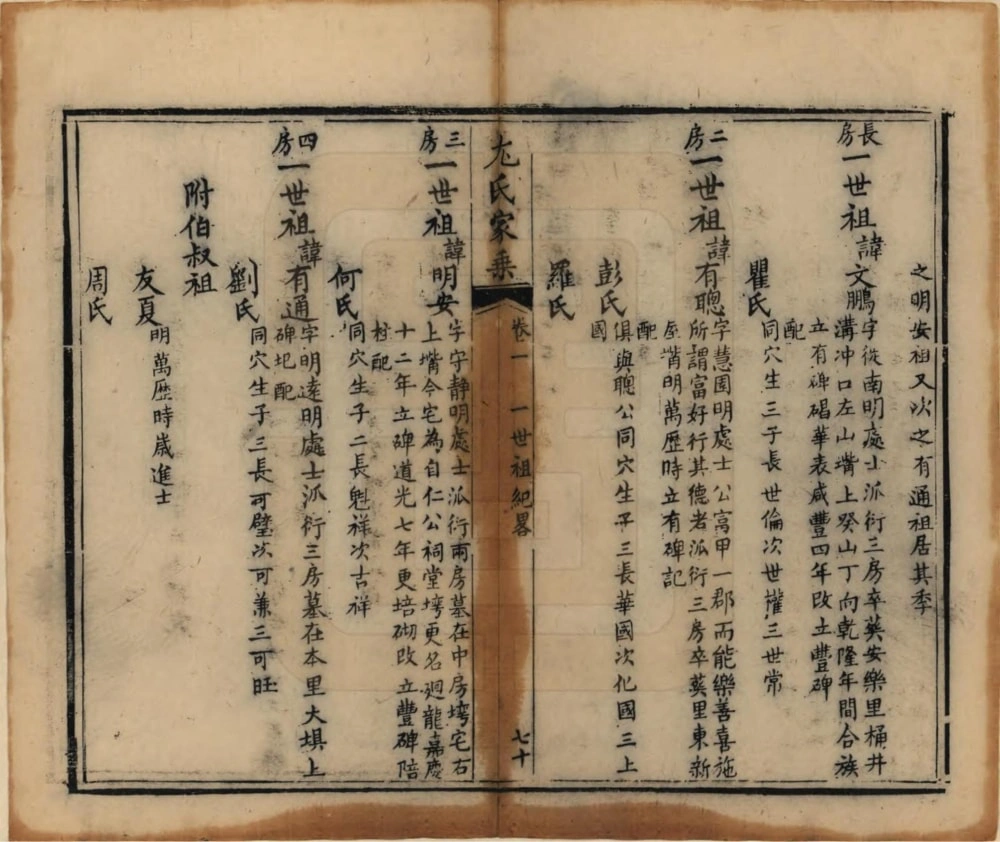 之明安祖又次之有通祖居其季
長房一世祖諱文鵬字從南明處士派衍三房卒葬安樂里桶井
溝冲口左山嘴上癸山丁向乾隆年間合族
立有碑碣華表咸豐四年改立豐碑
配
瞿氏同穴生三子長世倫次世㩴三世常
二房一世祖諱有聰字慧圃明處士公富甲一郡而能樂善喜施
所謂富好行其德者派衍三房卒葬里東新
屋嘴明萬歷時立有碑記
配
彭氏俱與聰公同穴生子三長華國次化國三上
國
羅氏
尢氏家乘
卷一 一世祖紀畧
七十
三房一世祖諱明安字守靜明處士派衍兩房墓在中房塆宅右
上嘴今宅為自仁公祠堂塆更名廻龍嘉慶
十二年立碑道光七年更培砌改立豐碑陪
村配
何氏同穴生子二長魁祥次吉祥
四房一世祖諱有通字明達明處士派衍三房墓在本里大垻上
碑圮配
劉氏同穴生子三長可璧次可兼三可旺
附伯叔祖
友夏明萬歷時歲進士
周氏